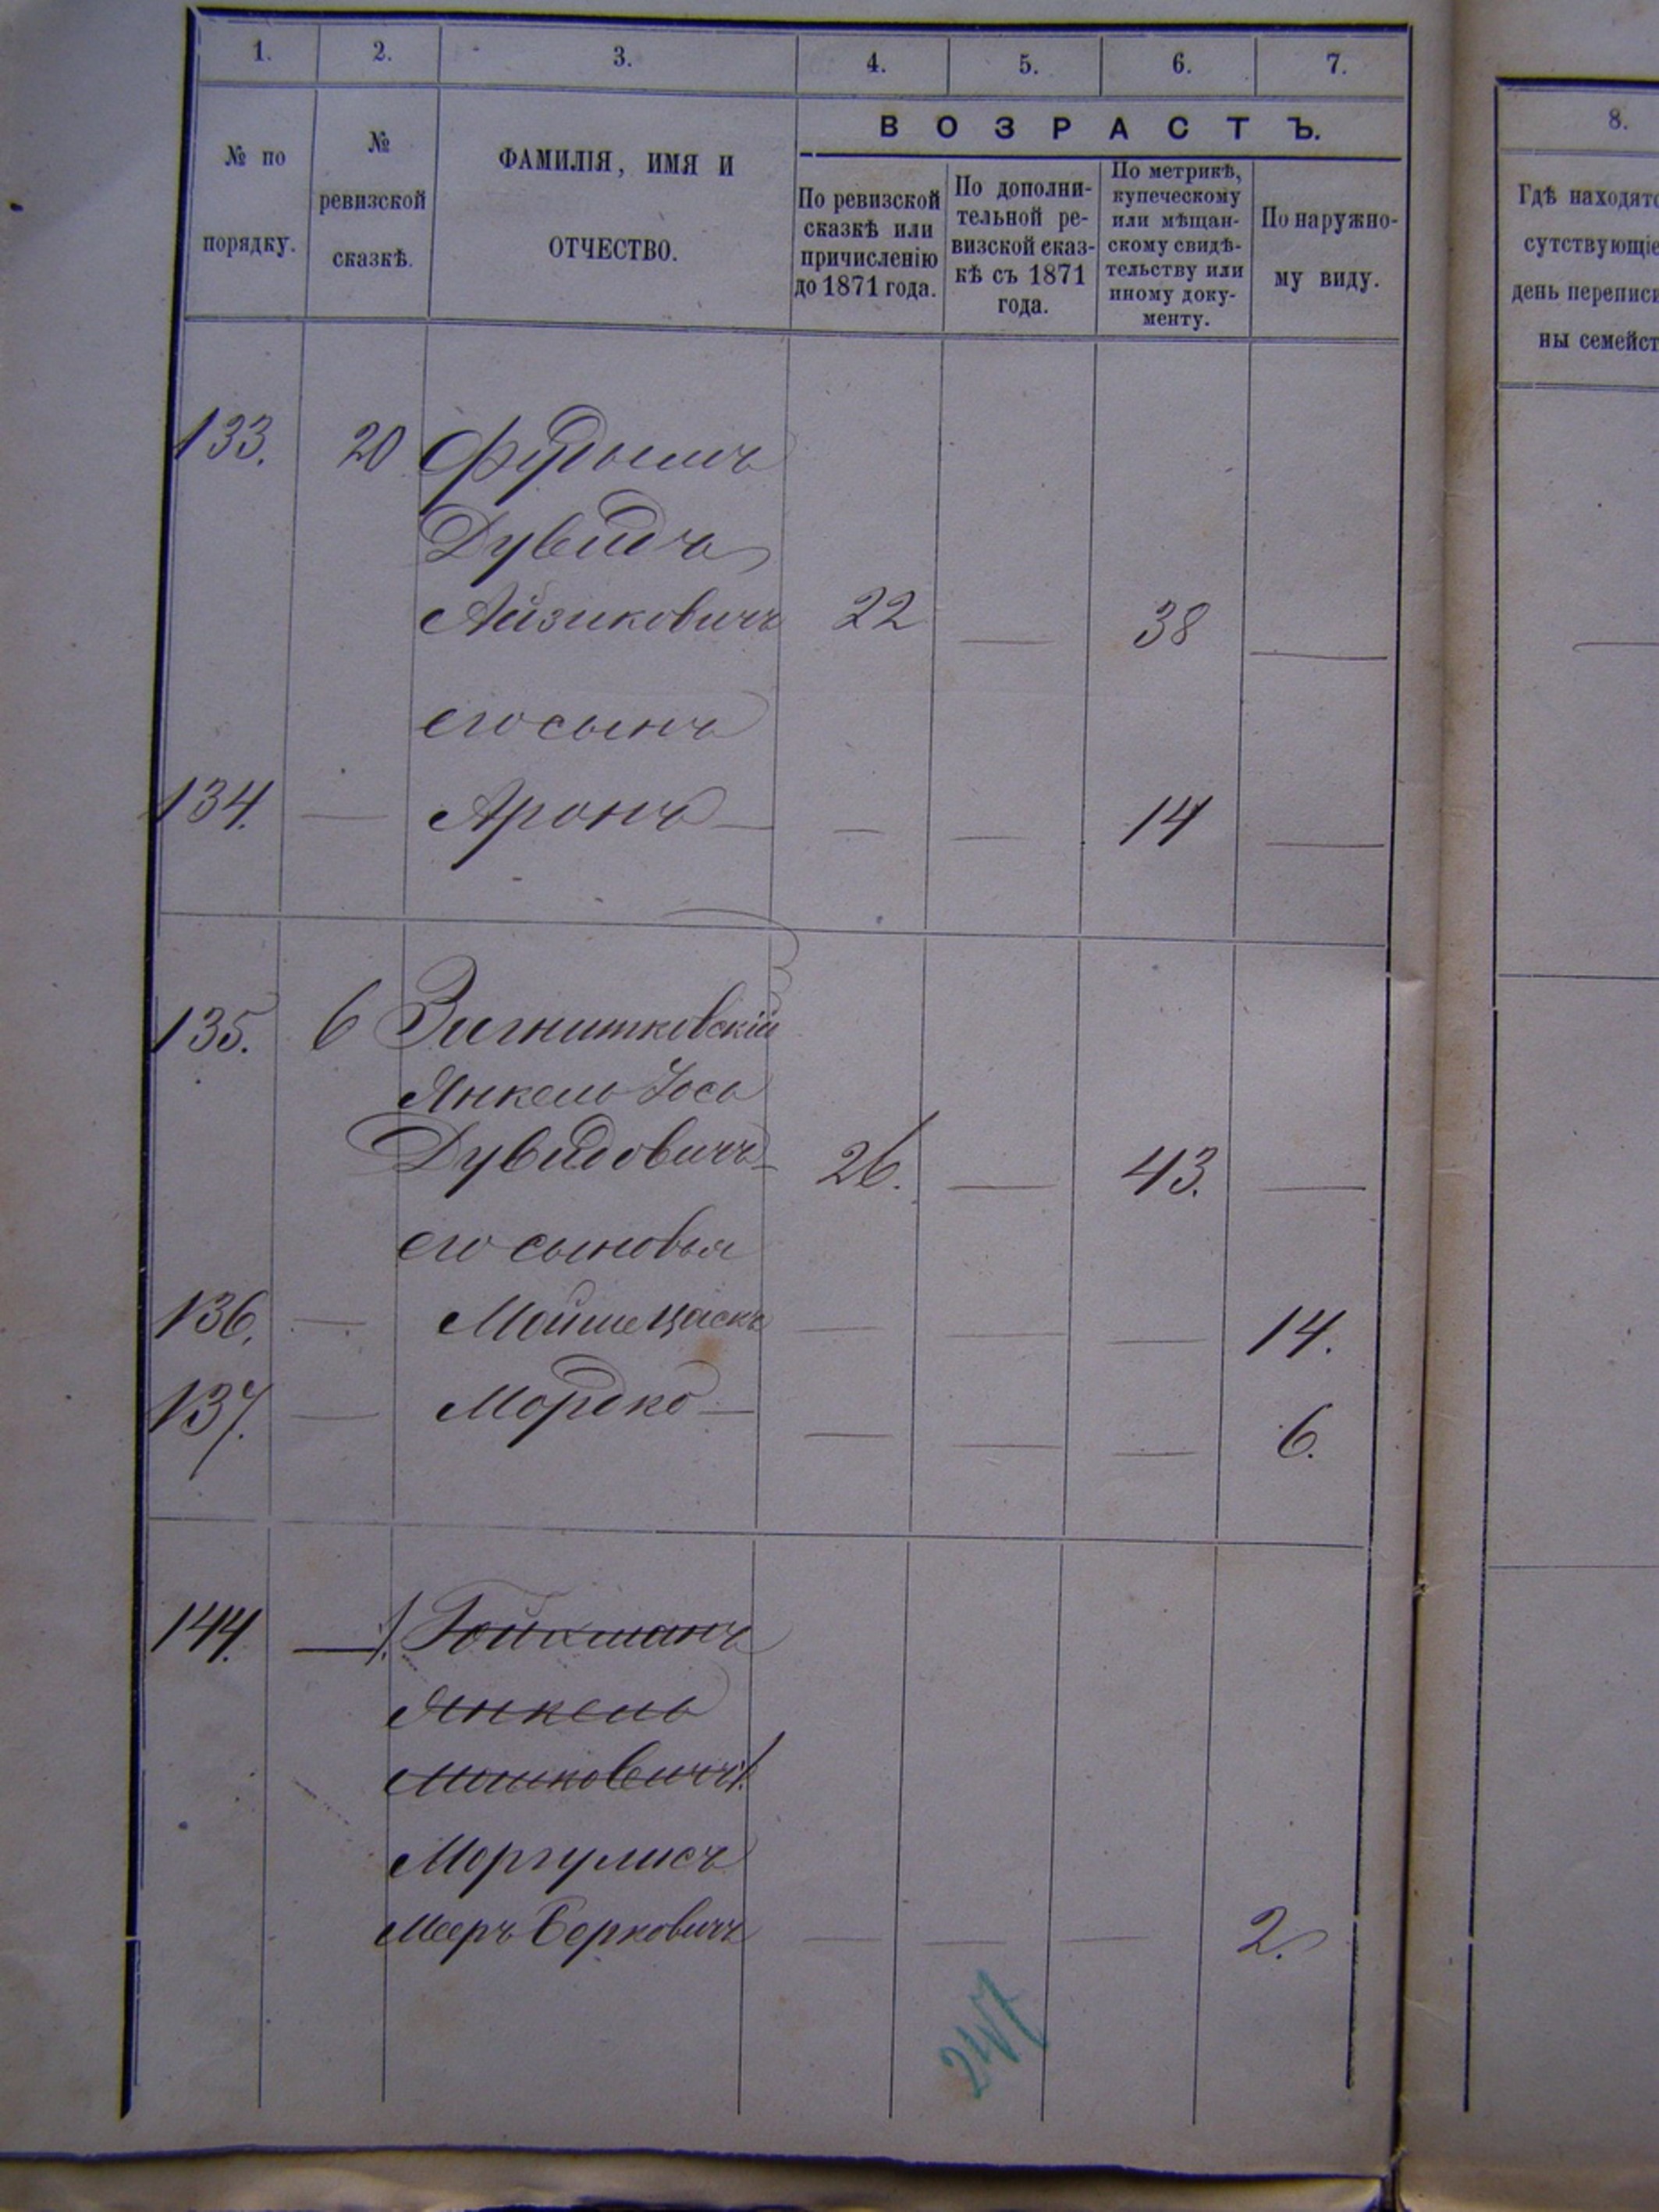 1. 2. 3. 4. 5. 6. 7.
№ по порядку.
№ ревизской сказкѣ.
ФАМИЛІЯ, ИМЯ И
ОТЧЕСТВО.
ВОЗРАСТЪ.
По ревизской
сказкѣ или
причисленію
до 1871 года.
По дополни-
тельной ре-
визской сказ-
кѣ съ 1871
года.
По метрикѣ,
купеческому
или мѣщан-
скому свидѣ-
тельству или
иному доку-
менту.
По наружно-
му виду.
8.
Гдѣ находятс
сутствующіе
день переписи
ны семейст
133. 20 Фудымъ
Дувидъ
Айзиковичъ 22 — 38 —
его сынъ
134. — Аронъ — — — 14 —
135. 6 Загнитковскій
Янкель Іось
Дувидовичъ — 26. — 43. —
его сыновья
136. — Мойше Цаскъ — — — 14.
137. — Мордко — — — — 6.
144. —
Янкель
Мошковичъ
Моргулисъ
Мееръ Берковичъ — — — 2.
247